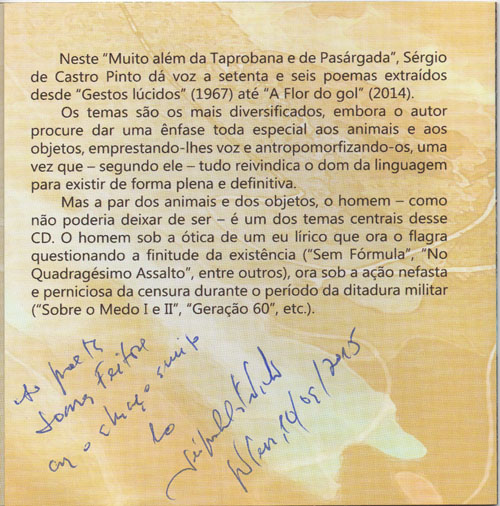 Neste “Muito além da Taprobana e de Pasárgada”, Sérgio
de Castro Pinto dá voz a setenta e seis poemas extraídos
desde “Gestos lúcidos” (1967) até “A Flor do gol” (2014).
Os temas são os mais diversificados, embora o autor
procure dar uma ênfase toda especial aos animais e aos
objetos, emprestando-lhes voz e antropomorfizando-os, uma
vez que – segundo ele – tudo reivindica o dom da linguagem
para existir de forma plena e definitiva.
Mas a par dos animais e dos objetos, o homem – como
não poderia deixar de ser – é um dos temas centrais desse
CD. O homem sob a ótica de um eu lírico que ora o flagra
questionando a finitude da existência (“Sem Fórmula”, “No
Quadragésimo Assalto”, entre outros), ora sob a ação nefasta
e perniciosa da censura durante o período da ditadura militar
(“Sobre o Medo I e II”, “Geração 60”, etc.).
Ao poeta
o abraço
do